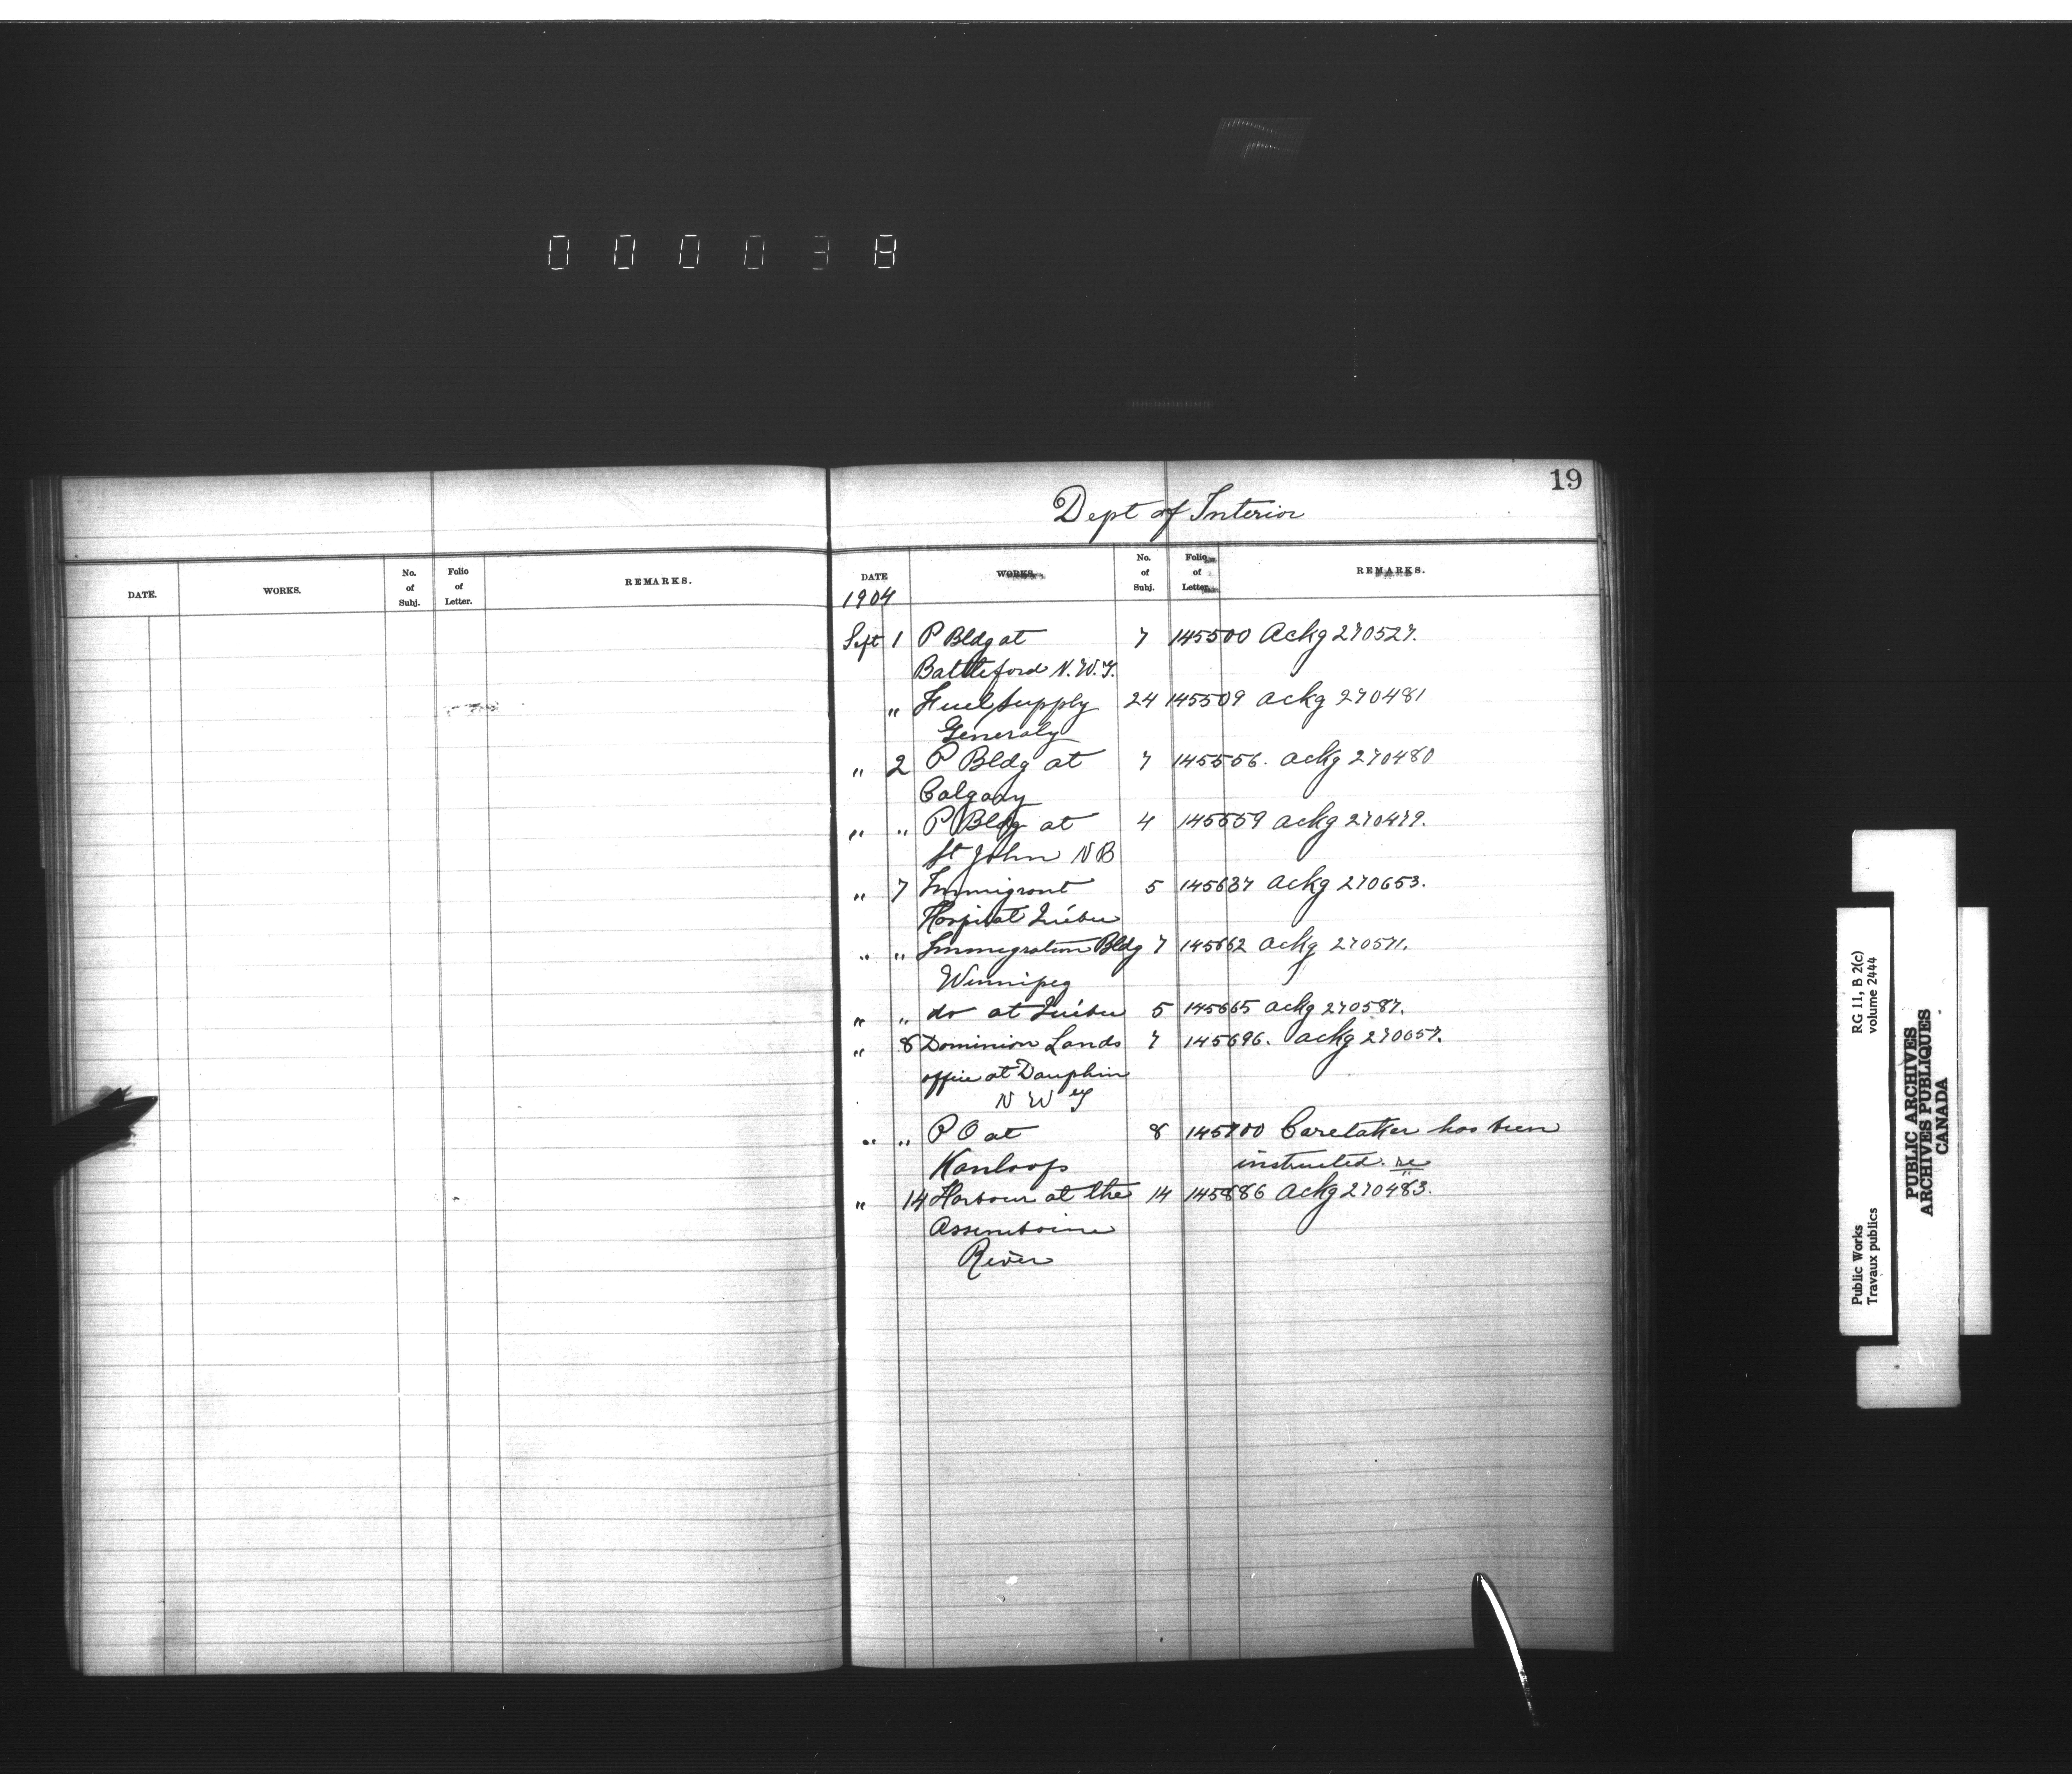 000038
19
Dept of Interior
DATE. WORKS. No. of Subj. Folio of Letter. REMARKS.
DATE WORKS. No. of Subj. Folio of Letter. REMARKS.
1904
Sept 1 P Bldg at 7 145500 Ackg 270527.
Battleford N.W.T.
" Fuel Supply 24 145509 ackg 270481
Generaly
" 2 P Bldg at 7 145556. ackg 270480
Calgary
" " P Bldg at 4 145559 ackg 270479.
St John N B
" 7 Immigrant 5 145637 ackg 270653.
Hospital Québec
" " Immigration Bldg 7 145662 ackg 270571.
Winnipeg
" " do at Québec 5 145665 ackg 270587.
" 8 Dominion Lands 7 145696. ackg 270657.
office at Dauphin
N W T
" " P O at 8 145700 Caretaker has been
Kamloops instructed. re
" 14 Harbour at the 14 145886 Ackg 270483.
Assiniboine
River
Public Works RG 11, B 2(c)
Travaux publics volume 2444
PUBLIC ARCHIVES
ARCHIVES PUBLIQUES
CANADA